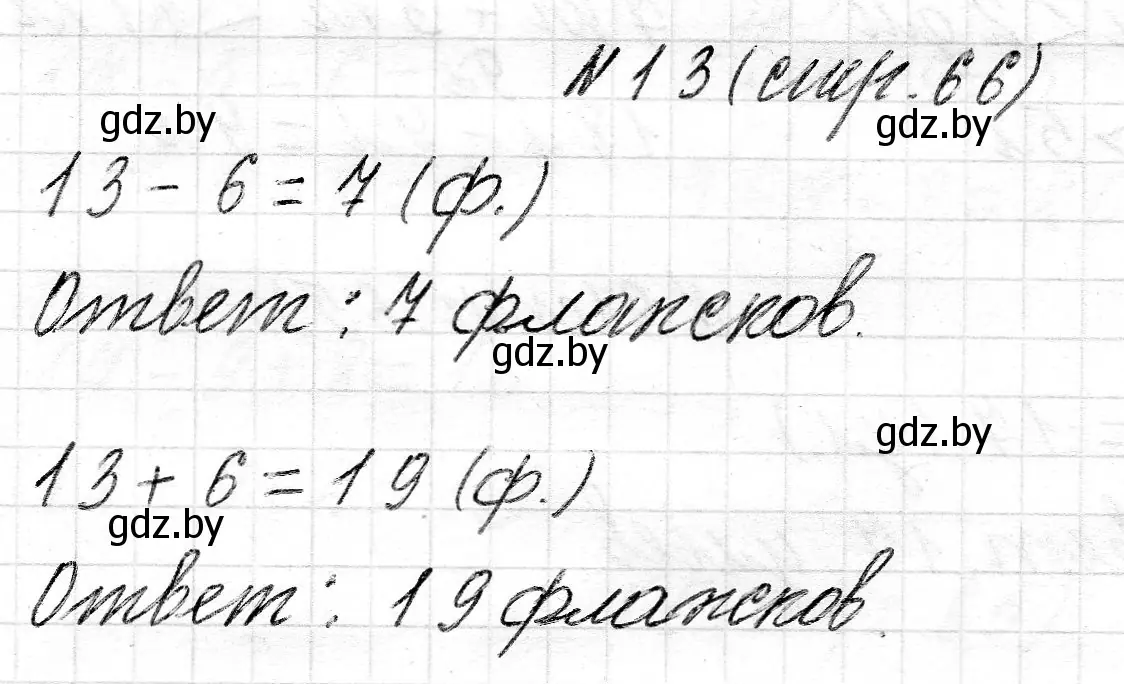 №13 (стр. 66)
gdz.by
gdz.by
13 - 6 = 7 (ф.)
Ответ: 7 флажков.
gdz.by
gdz.by
13 + 6 = 19 (ф.)
gdz.by
Ответ: 19 флажков.